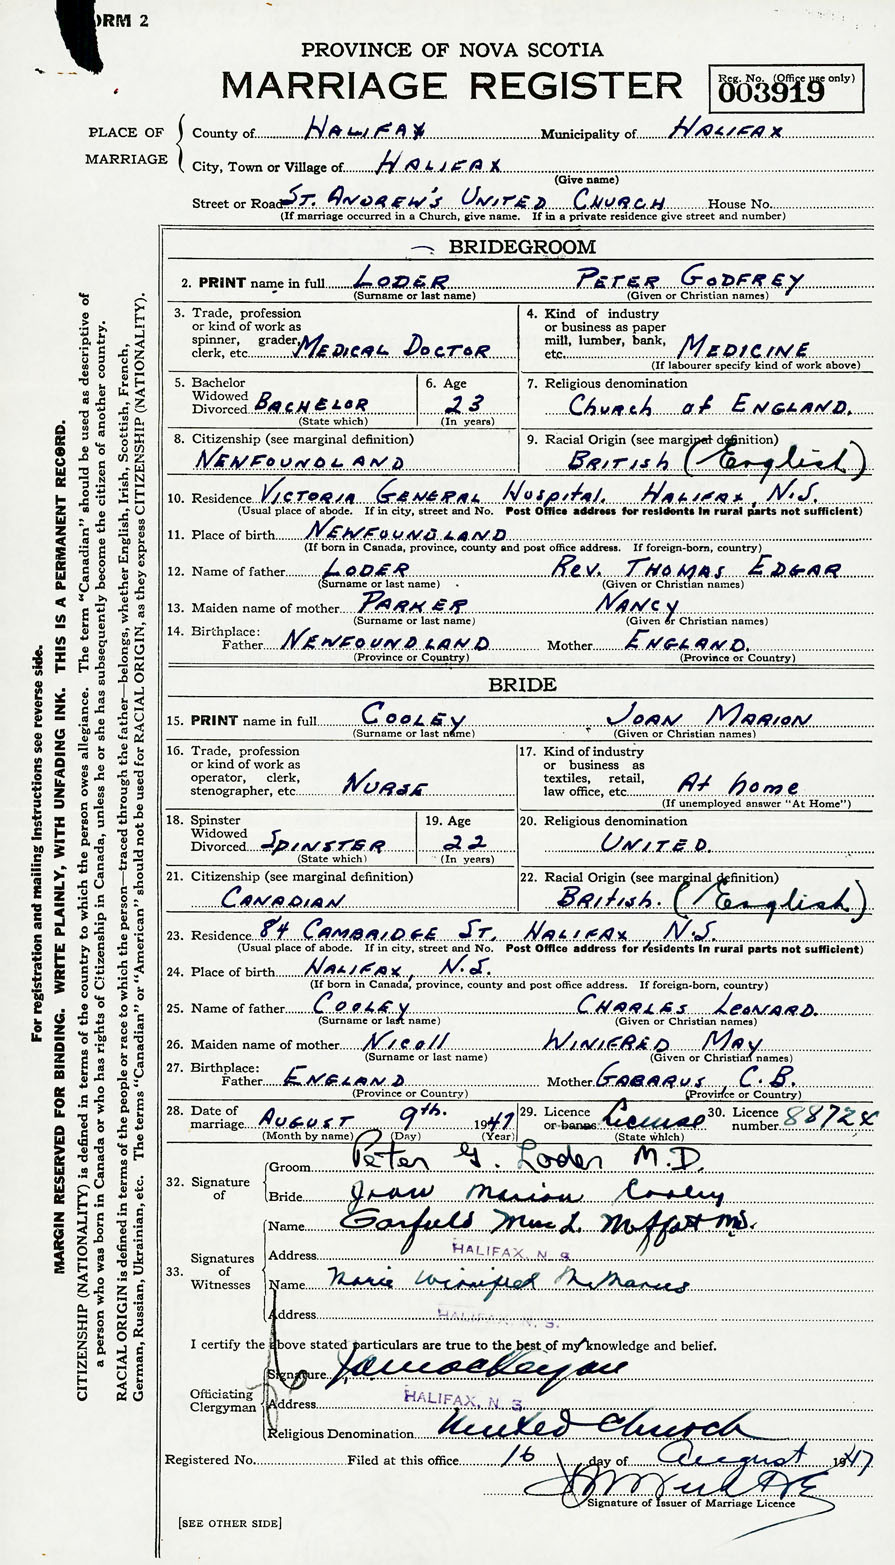 ORM 2
PROVINCE OF NOVA SCOTIA
MARRIAGE REGISTER
Reg. No. (Office use only)
003919
PLACE OF MARRIAGE
County of HALIFAX Municipality of HALIFAX
City, Town or Village of HALIFAX
(Give name)
Street or Road ST. ANDREW'S UNITED CHURCH House No.
(If marriage occurred in a Church, give name. If in a private residence give street and number)
BRIDEGROOM
2. PRINT name in full LODER PETER GODFREY
(Surname or last name) (Given or Christian names)
3. Trade, profession or kind of work as spinner, grader, clerk, etc. MEDICAL DOCTOR
4. Kind of industry or business as paper mill, lumber, bank, etc. MEDICINE
(If labourer specify kind of work above)
5. Bachelor Widowed Divorced BACHELOR
(State which)
6. Age 23
(In years)
7. Religious denomination
Church of ENGLAND.
8. Citizenship (see marginal definition)
NEWFOUNDLAND
9. Racial Origin (see marginal definition)
BRITISH (English)
10. Residence VICTORIA GENERAL HOSPITAL. HALIFAX, N.S.
(Usual place of abode. If in city, street and No. Post Office address for residents in rural parts not sufficient)
11. Place of birth NEWFOUNDLAND
(If born in Canada, province, county and post office address. If foreign-born, country)
12. Name of father LODER REV. THOMAS EDGAR
(Surname or last name) (Given or Christian names)
13. Maiden name of mother PARKER NANCY
(Surname or last name) (Given or Christian names)
14. Birthplace:
Father NEWFOUNDLAND Mother ENGLAND.
(Province or Country) (Province or Country)
BRIDE
15. PRINT name in full COOLEY JOAN MARION
(Surname or last name) (Given or Christian names)
16. Trade, profession or kind of work as operator, clerk, stenographer, etc. NURSE
17. Kind of industry or business as textiles, retail, law office, etc. At home
(If unemployed answer "At Home")
18. Spinster Widowed Divorced SPINSTER
(State which)
19. Age 22
(In years)
20. Religious denomination
UNITED.
21. Citizenship (see marginal definition)
CANADIAN
22. Racial Origin (see marginal definition)
BRITISH. (English)
23. Residence 84 CAMBRIDGE ST. HALIFAX N.S.
(Usual place of abode. If in city, street and No. Post Office address for residents in rural parts not sufficient)
24. Place of birth HALIFAX, N.S.
(If born in Canada, province, county and post office address. If foreign-born, country)
25. Name of father COOLEY CHARLES LEONARD.
(Surname or last name) (Given or Christian names)
26. Maiden name of mother NICOLL WINIFRED MAY
(Surname or last name) (Given or Christian names)
27. Birthplace:
Father ENGLAND Mother GABARUS, C.B.
(Province or Country) (Province or Country)
28. Date of marriage AUGUST 9th. 1947
(Month by name) (Day) (Year)
29. Licence or banns License
(State which)
30. Licence number
32. Signature of
Groom Peter G. Loder M.D.
Bride Joan Marion Cooley
33. Signatures of Witnesses
Name Garfield Moffatt
Address HALIFAX, N.S.
Name Marie Winnifred McManus
Address HALIFAX, N.S.
I certify the above stated particulars are true to the best of my knowledge and belief.
Officiating Clergyman
Signature
Address HALIFAX, N.S.
Religious Denomination United Church
Registered No. Filed at this office 16 day of August 1947
Signature of Issuer of Marriage Licence
[SEE OTHER SIDE]
For registration and mailing instructions see reverse side.
MARGIN RESERVED FOR BINDING. WRITE PLAINLY, WITH UNFADING INK. THIS IS A PERMANENT RECORD.
CITIZENSHIP (NATIONALITY) is defined in terms of the country to which the person owes allegiance. The term "Canadian" should be used as descriptive of
a person who was born in Canada or who has rights of Citizenship in Canada, unless he or she has subsequently become the citizen of another country.
RACIAL ORIGIN is defined in terms of the people or race to which the person—traced through the father—belongs, whether English, Irish, Scottish, French,
German, Russian, Ukrainian, etc. The terms "Canadian" or "American" should not be used for RACIAL ORIGIN, as they express CITIZENSHIP (NATIONALITY).